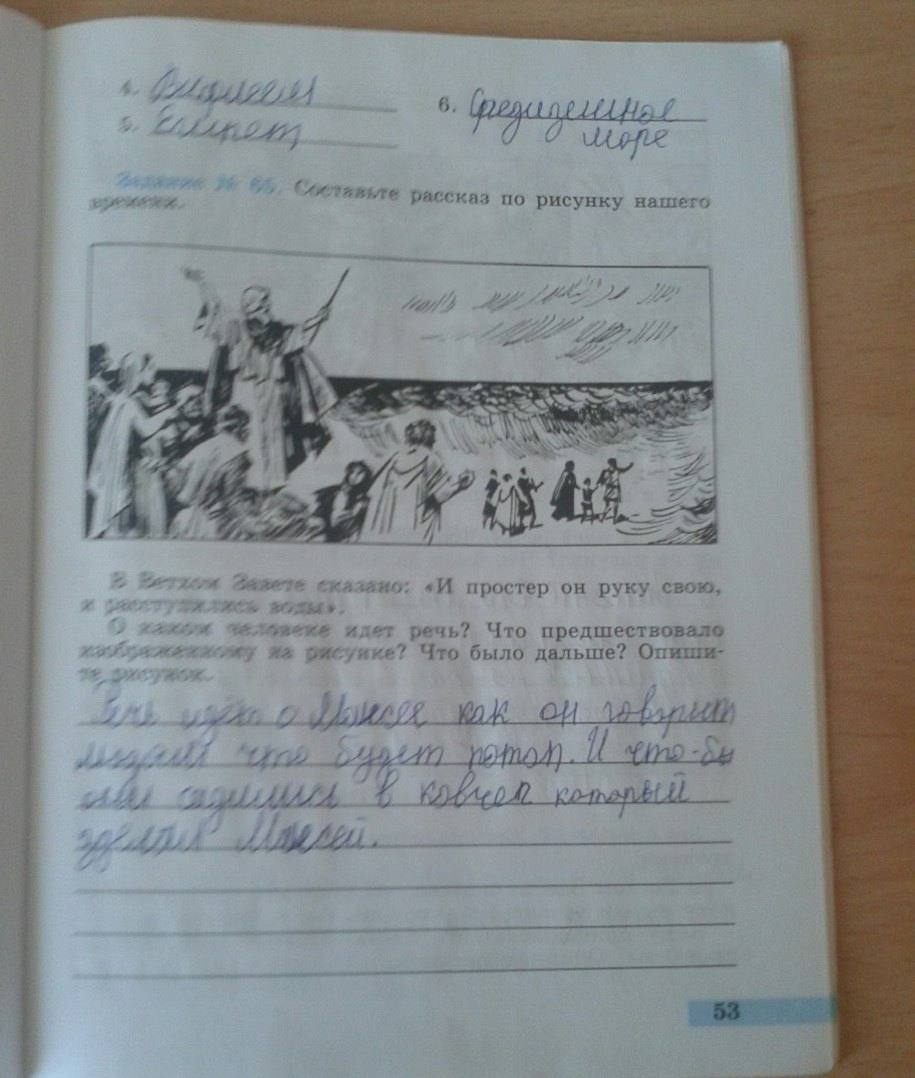 4. Вифлеем
6. Средиземное
море
5. Египет
Задание № 65. Составьте рассказ по рисунку нашего
времени.
В Ветхом Завете сказано: «И простер он руку свою,
и расступились воды».
О каком человеке идет речь? Что предшествовало
изображенному на рисунке? Что было дальше? Опиши-
те рисунок.
Речь идёт о Моисее как он говорит
людям что будет потоп. И что-бы
они садились в ковчег который
зделал Моисей.
53